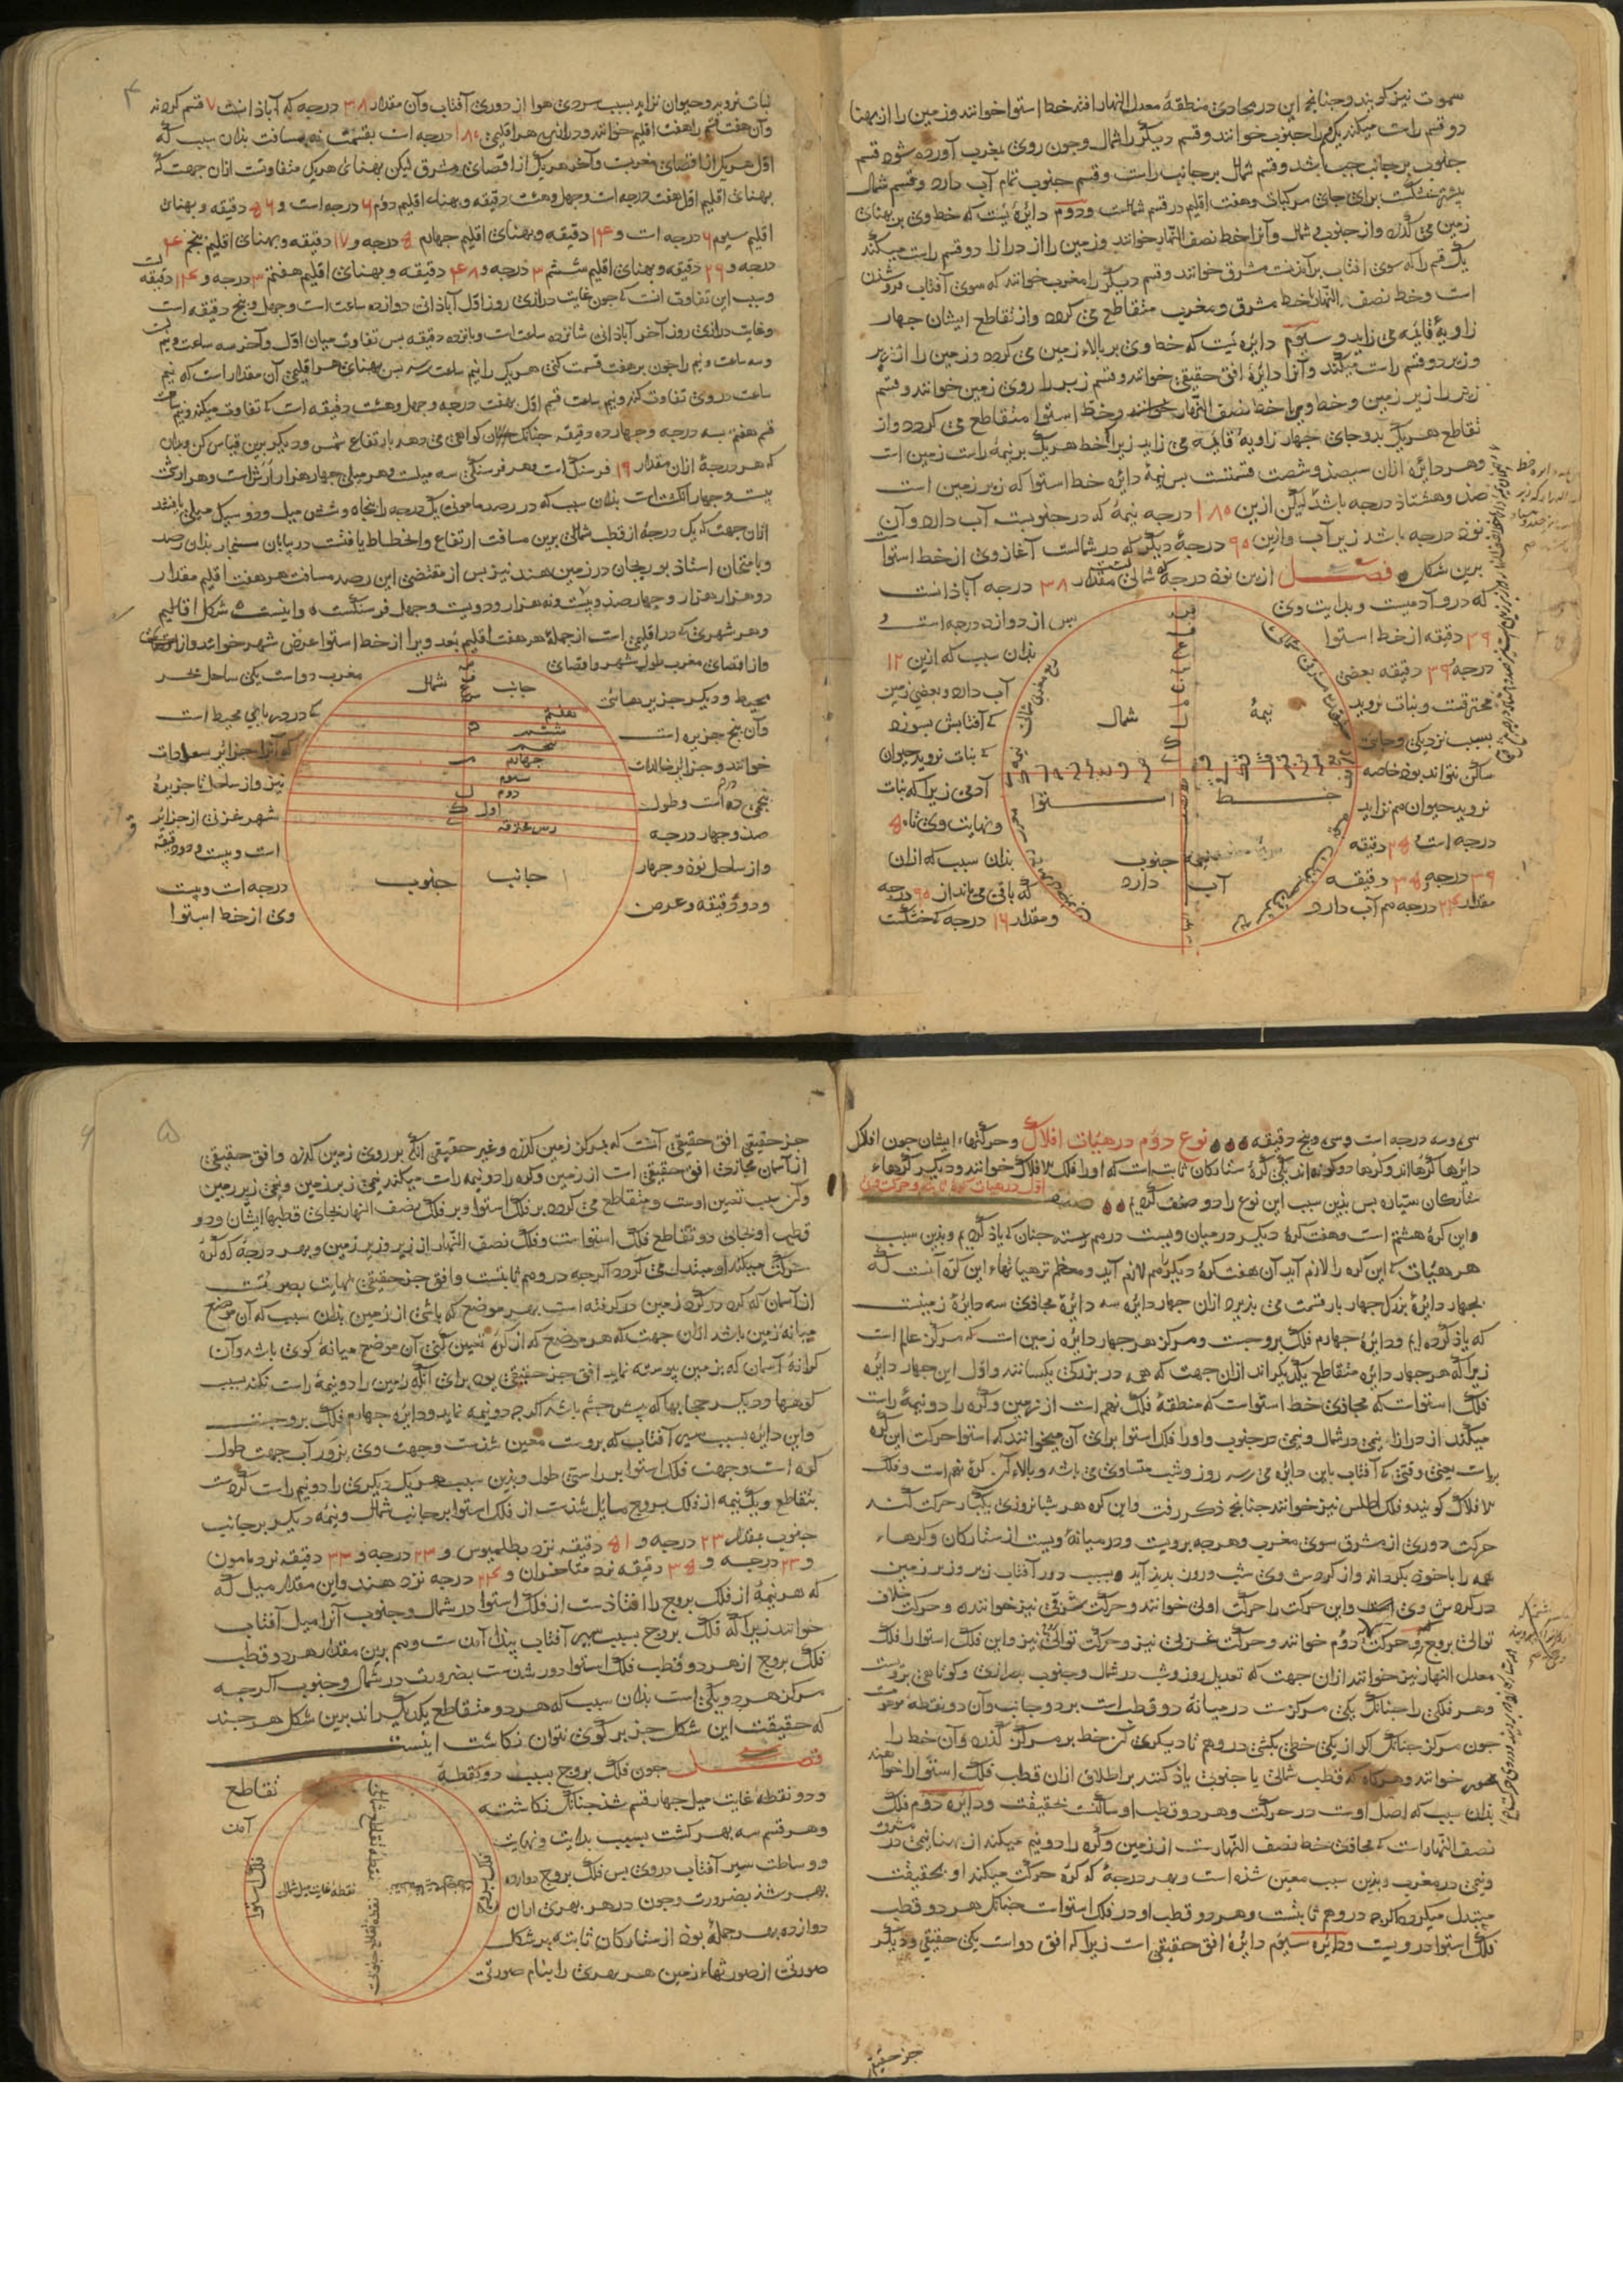 سموت نیز کویند وجنانج این در محاذی منطقهٔ معدل النهار افتد خط استوا خوانند وزمین را از بهنا
دو قسم راست میکند یک قسم را جنوب خوانند وقسم دیکر را شمال وجون روی بمغرب آورده شود قسم
جنوب بر جانب جب باشد وقسم شمال بر جانب راست وقسم جنوب تمام آب دارد وقسم شمال
بیشتر خشکست برای جای مرکبات وهفت اقلیم در قسم شمالست ودوم دایره ئیست که خط وی بر بهنای
زمین می کذرد واز جنوب وشمال وآنرا خط نصف النهار خوانند وزمین را از درازا دو قسم راست میکند
یک قسم را که سوی افتاب برآمدنست مشرق خوانند وقسم دیکر را مغرب خوانند که سوی آفتاب فروشدن
است وخط نصف النهار با خط مشرق ومغرب متقاطع می کردد واز تقاطع ایشان جهار
زاویهٔ قائمه می زاید وسیوم دایره ئیست که خط وی بر بالاء زمین می کردد وزمین را از زبر
وزیر دو قسم راست میکند وآنرا دایرهٔ افق حقیقی خوانند وقسم زبر را روی زمین خوانند وقسم
زیر را زیر زمین وخط ویرا خط نصف النهار خوانند وخط استوا متقاطع می کردد واز
تقاطع هر یک بدو جای جهار زاویهٔ قائمه می زاید زیراک خط هر یک بر نیمهٔ راست زمین است
وهر دایرهٔ ازان سیصد وشصت قسمتست بس نیمهٔ دایره خط استوا که زیر زمین است
صد وهشتاد درجه باشد لیکن ازین ۱۸۰ درجه نیمهٔ که در جنوبیست آب دارد وآن
نود درجه باشد زیر آب وازین ۹۰ درجهٔ دیکر که در شمالست آغاز وی از خط استوا
برین شکل فصل ازین نود درجهٔ شمالی مقدار ۳۸ درجه آباد انست
که درو آدمیست وبدایت وی
بس از دوازده درجه است و
۳۹ دقیقه از خط استوا
بدان سبب که ازین ۱۲
درجه و ۳۹ دقیقه بعضی
آب دارد وبعضی زمین
محترقست ونبات نروید
که آفتابش بسوزد
بسبب نزدیکی وجای
که نبات نروید حیوان
ساکن نتواند بود خاصه
آدمی زیرا که نبات
نروید حیوان هم نزاید
ونهایت وی تا ۵۰
درجه است و ۳۸ دقیقه
بدان سبب که ازان
۳۹ درجه و ۳۸ دقیقه
که باقی می ماند از ۹۰ درجه
مقدار ۲۴ درجه هم آب دارد
ومقدار ۱۶ درجه که خشکست
شمال
نیمهٔ
خط استوا
نیمه جنوب
آب دارد
۴
نبات نروید وحیوان نزاید بسبب سردی هوا از دوری آفتاب وآن مقدار ۳۸ درجه که آباد انست ۷ قسم کردند
وآن هفت قسم را هفت اقلیم خوانند ودرازی هر اقلیمی ۱۸۰ درجه است بقسمت نه بمسافت بدان سبب که
اول هر یک از اقصای مغربست وآخر هر یک از اقصای مشرق لیکن بهنای هر یک متفاوتست ازان جهت که
بهنای اقلیم اول هفت درجه است وجهل وهشت دقیقه وبهناء اقلیم دوم ۶ درجه است و ۵۶ دقیقه وبهنای
اقلیم سیوم ۶ درجه است و ۱۴ دقیقه وبهنای اقلیم جهارم ۵ درجه و ۱۷ دقیقه وبهنای اقلیم بنجم ۴
درجه و ۲۶ دقیقه وبهنای اقلیم ششم ۳ درجه و ۴۸ دقیقه وبهنای اقلیم هفتم ۳ درجه و ۱۴ دقیقه
وسبب این تفاوت انست که جون غایت درازی روز اول آبادانی دوازده ساعت است وجهل وبنج دقیقه است
وغایت درازی روز آخر آبادانی شانزده ساعت است وبانزده دقیقه بس تفاوت میان اول وآخر سه ساعت ونیم است
وسه ساعت ونیم را جون بر هفت قسمت کنی هر یک را نیم ساعت رسد بس بهنای هر اقلیمی آن مقدار است که نیم
ساعت دروی تفاوت کند ونیم ساعت قسم اول بهفت درجه وجهل وهشت دقیقه است که تفاوت میکند ونیم ساعت
قسم هفتم بسه درجه وجهارده دقیقه جنانک کواهی می دهد بارتفاع شمس ودیکر برین قیاس کن وبدان
که هر درجهٔ ازان مقدار ۱۹ فرسنک است وهر فرسنکی سه میلست وهر میلی جهار هزار ارش است وهر ارش
بیست وجهار انکشت است بدان سبب که در رصد مامون یک درجه را بنجاه وشش میل ودو سیک میلی یافتند
ازان جهت که یک درجهٔ از قطب شمالی برین مسافت ارتفاع وانحطاط یافتست در بیابان سنجار بدان رصد
وبامتحان استاذ بوریحان در زمین هند نیز بس از مقتضی این رصد مسافت هر هفت اقلیم مقدار
دو هزار هزار وجهار صد وبیست ونه هزار ودویست وجهل فرسنکست واینست شکل اقالیم
وهر شهری که در اقلیمی است از جملهٔ هر هفت اقلیم بعد ویرا از خط استوا عرض شهر خوانند
واز اقصای مغرب طول شهر واقصای
مغرب دو است یکی ساحل بحر
محیط ودیکر جزیرهائیست
که در دریای محیط است
وآن بنج جزیره است
که آنرا جزائر سعادات
خوانند وجزایر خالدات
نیز واز ساحل تا جزیرهٔ
بنجمی ده است وطول
شهر غزنی از جزائر
صد وجهار درجه
است وبیست ودو دقیقه
واز ساحل نود وجهار
درجه است وبیست
ودو دقیقه وعرض
وی از خط استوا
جانب شمال
هفتم
ششم
بنجم
جهارم
سیوم
دوم
اول
جانب جنوب
سی وسه درجه است وسی وبنج دقیقه نوع دوم در هیات افلاک وحرکتهاء ایشان جون افلاک
دایرها کرها اند وکرها دو کونه اند یکی کرهٔ ستارکان ثابته است که اورا فلک الافلاک خوانند ودیکر کرهاء
ستارکان سیاره بس بدین سبب این نوع را دو صنف کردیم صنف اول در هیات کرهٔ ثابته وحرکت آن
واین کرهٔ هشتم است وهفت کرهٔ دیکر در میان ویست درهم بسته جنان که یاد کردیم وبدین سبب
هر هیات که این کره را لازم آید آن هفت کرهٔ دیکر را هم لازم آید ومعظم تر هیاتهاء این کره آنست که
بجهار دایرهٔ بزرک جهار بار قسمت می بذیرد ازان جهار دایره سه دایرهٔ محاذی سه دایرهٔ زمینست
که یاد کرده ایم ودایرهٔ جهارم فلک بروجست ومرکز هر جهار دایره زمین است که مرکز عالم است
زیرا که هر جهار دایره متقاطع یکدیکر اند ازان جهت که همه در بزرکی یکسانند واول این جهار دایره
فلک استواست که محاذی خط استواست که منطقهٔ فلک نهم است از زمین وکره را دو نیمهٔ راست
میکند از درازا نیمی در شمال ونیمی در جنوب واورا فلک استوا برای آن میخوانند که استوا حرکت این کره
براست یعنی وقتی که آفتاب باین دایره می رسد روز وشب متساوی می باشد وبالاء آن کرهٔ نهم است وفلک
الافلاک کویند وفلک اطلس نیز خوانند جنانج ذکر رفت واین کره هر شبانروزی یکبار حرکت کند
حرکت دوری از مشرق سوی مغرب وهرجه برویست ودر میانهٔ ویست از ستارکان وکرهاء
همه را با خود بکرداند واز کردش وی شب وروز بدید آید وبسبب دور آفتاب زبر وزیر زمین
در کردش وی است واین حرکت را حرکت اولی خوانند وحرکت شرقی نیز خوانند وحرکت خلاف
توالی بروج وحرکت دوم خوانند وحرکت غربی نیز وحرکت توالی نیز واین فلک استوا را فلک
معدل النهار نیز خوانند ازان جهت که تعدیل روز وشب در شمال وجنوب بدرازی وکوتاهی بدوست
وهر فلکی را جنانک یکی مرکزست در میانهٔ دو قطب است بر دو جانب وآن دو نقطهٔ موهوست
جون مرکز جنانک کر از یکی خطی بکشی در وهم تا دیکری آن خط بر مرکز کذرد وآن خط را
محور خوانند وهرکاه که قطب شمالی یا جنوبی یاد کنند بر اطلاق ازان قطب فلک استوا را خواهند
بدان سبب که اصل اوست در حرکت وهر دو قطب او ساکنست بحقیقت ودایرهٔ دوم فلک
نصف النهار است که محاذی خط نصف النهارست از زمین وکره را دو نیم میکند از بهنا نیمی در مشرق
ونیمی در مغرب وبدین سبب معین شده است وبهر درجهٔ که کرهٔ حرکت میکند او بحقیقت
مبتدل میکردد اکرجه در وهم ثابتست وهر دو قطب او در فلک استواست جنانک هر دو قطب
فلک استوا در ویست ودایرهٔ سیوم دایرهٔ افق حقیقی است زیرا که افق دو است یکی حقیقی ودیکر
جز حقیقی
۵
جز حقیقی افق حقیقی آنست که بمرکز زمین کذرد وغیر حقیقی انک بر روی زمین کذرد وافق حقیقی
از آسمان محاذی افق حقیقی است از زمین وکره را دو نیمه راست میکند نیمی زبر زمین ونیمی زیر زمین
وآن سبب تعیین اوست ومتقاطع می کردد بر فلک استوا وبر فلک نصف النهار بجای قطبها ایشان ودو
قطب او بجای دو تقاطع فلک استواست وفلک نصف النهار از زبر وزیر زمین وبهر درجهٔ که کرهٔ
حرکت میکند او مبتدل می کردد اکرجه در وهم ثابتست وافق جز حقیقی نهایت بصرست
از آسمان که کرد بر کرد زمین در کرفته است بهر موضع که باشی از زمین بدان سبب که آن موضع
میانهٔ زمین باشد ازان جهت که هر موضع که از کره تعیین کنی آن موضع میانهٔ کوی باشد وآن
کرانهٔ آسمان که بزمین بیوسته نماید افق جز حقیقی بود برای آنک زمین را دو نیمهٔ راست نکند بسبب
کوهها ودیکر حجابها که بیش جشم باشد اکرجه دو نیمه نماید ودایرهٔ جهارم فلک بروجست
واین دایره بسبب سیر آفتاب که بروست معین شدست وجهت وی بزور آب جهت طول
کره است وجهت فلک استوا بر راستی طول وبدین سبب هر یک دیکری را دو نیم راست کردست
بتقاطع ویک نیمه از فلک بروج مایل شدست از فلک استوا بر جانب شمال ونیمهٔ دیکر بر جانب
جنوب بمقدار ۲۳ درجه و ۵۱ دقیقه نزد بطلمیوس و ۲۳ درجه و ۳۳ دقیقه نزد مامون
و ۲۳ درجه و ۳۵ دقیقه نزد متاخران و ۲۴ درجه نزد هند واین مقدار میل که
که هر نیمهٔ از فلک بروج را افتادست از فلک استوا در شمال وجنوب آنرا میل آفتاب
خوانند زیرا که فلک بروج بسبب سیر آفتاب بیدا آمدست وهم برین مقدار هر دو قطب
فلک بروج از هر دو قطب فلک استوا دور شدست بضرورت در شمال وجنوب اکرجه
مرکز هر دو یکی است بدان سبب که هر دو متقاطع یکدیکر اند برین شکل هر جند
که حقیقت این شکل جز بر کوی نتوان نکاشت اینست
فصل جون فلک بروج بسبب دو نقطهٔ
تقاطع
ودو نقطهٔ غایت میل جهار قسم شد جنانک نکاشته
آمد
وهر قسم سه بهر کشت بسبب بدایت ونهایت
ووساطت سیر آفتاب دروی بس فلک بروج دوازده
بهر شد بضرورت وجون در هر بهری ازان
دوازده بهر جملهٔ بود از ستارکان ثابته بر شکل
صورتی از صورتهاء زمین هر بهری را بنام صورتی
فلک استوا
نقطهٔ غایت میل شمالی
فلک بروج